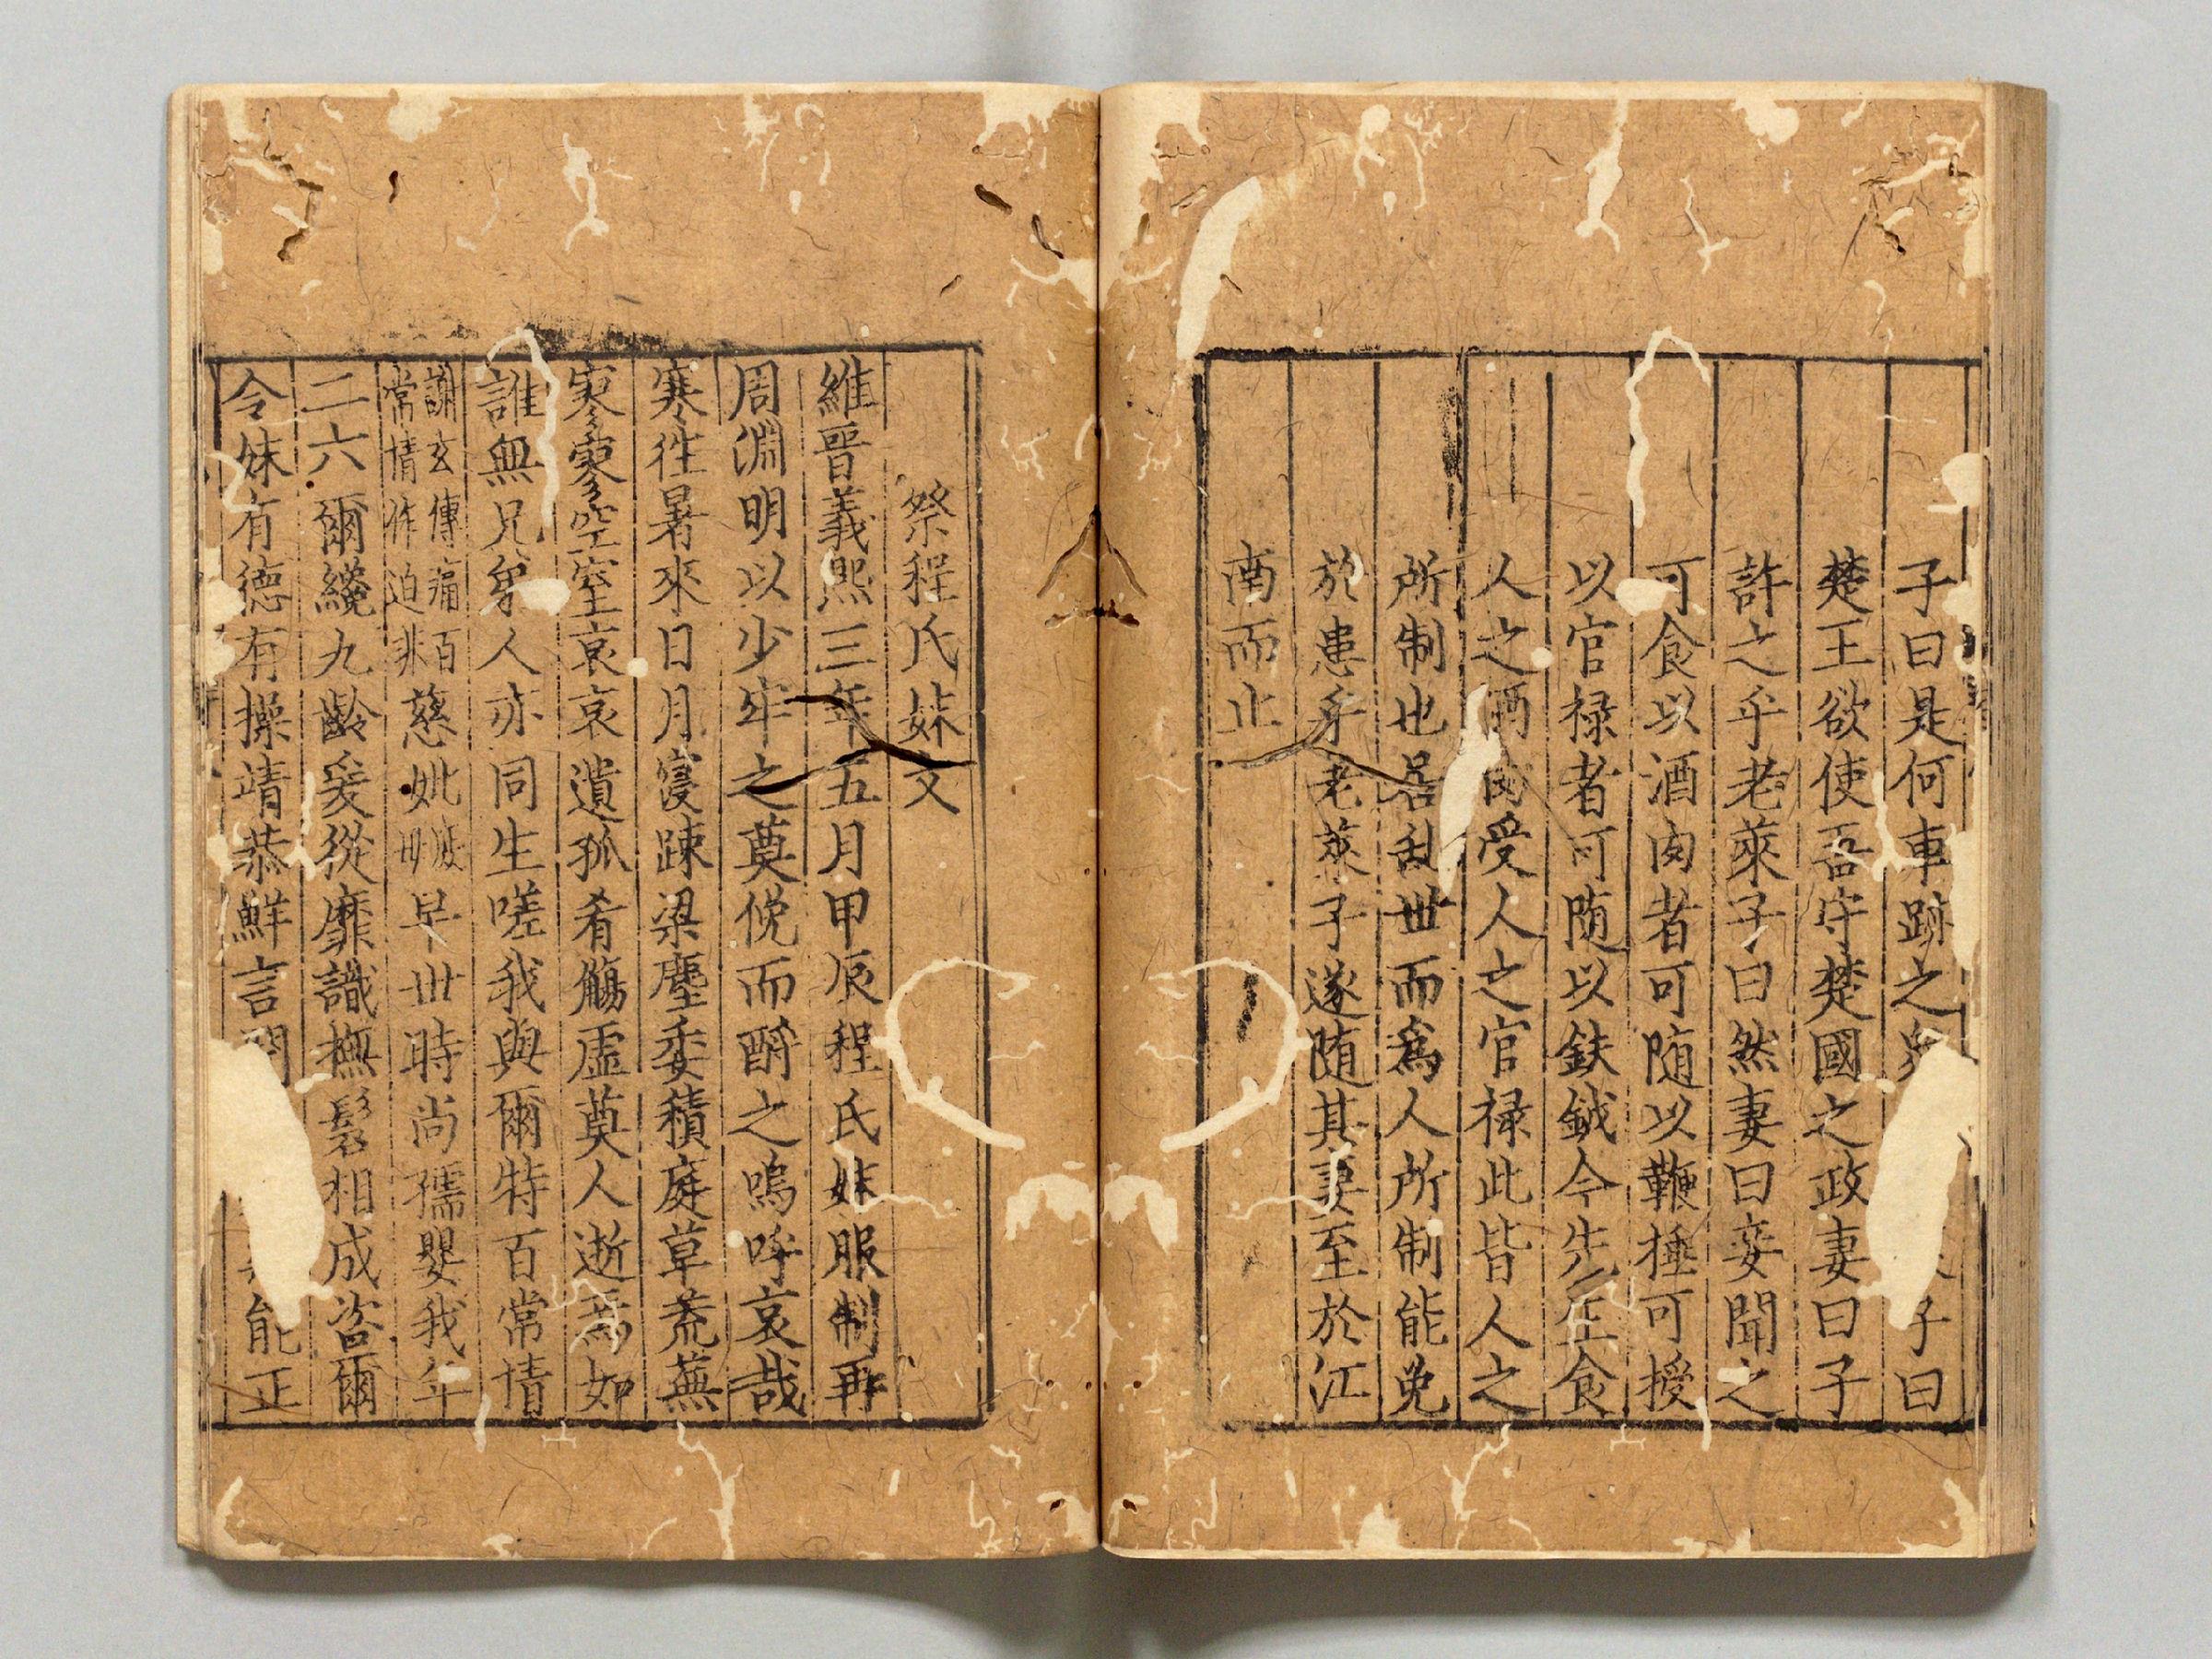 子曰是何車跡之衆
子曰
楚王欲使吾守楚國之政妻曰子
許之乎老萊子曰然妻曰妾聞之
可食以酒肉者可随以鞭捶可授
以官禄者可随以鈇鉞今先生食
人之酒肉受人之官禄此皆人之
所制也居乱世而爲人所制能免
於患乎老萊子遂随其妻至於江
南而止
祭程氏妹文
維晉義熙三年五月甲辰程氏妹服制再
周淵明以少牢之奠俛而酹之嗚呼哀哉
寒徃暑來日月寖踈梁塵委積庭草荒蕪
寥寥空室哀哀遺孤肴觴虚奠人逝焉如
誰無兄弟人亦同生嗟我與爾特百常情
謝玄傳痛百
常情作迫非
慈妣
早世時尚孺嬰我年
二六爾纔九齡爰從靡識撫髫相成咨爾
令妹有德有操靖恭鮮言聞
能正